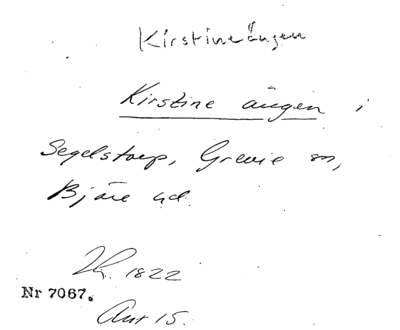 Kirstineängen
Kirstine ängen i
Segelstorp, Grevie sn,
Bjäre hd.
1822
Nr 7067.
15.